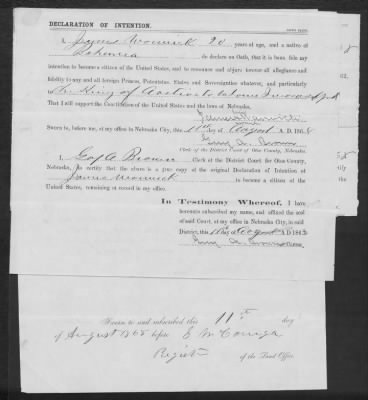 DECLARATION OF INTENTION.
I, James 20 years of age, and a native of
Bohemia do declare on Oath, that it is bona fide my
intention to become a citizen of the United States, and to renounce and abjure forever all allegiance and
fidelity to any and all foreign Princes, Potentates, States and Sovereignties whatever, and particularly
The King of
That I will support the Constitution of the United States and the laws of Nebraska.
James
Sworn to, before me, at my office in Nebraska City, this 11th day of August A. D. 186
Clerk of the District Court of Otoe County, Nebraska.
I, Geo. A. Brown Clerk of the District Court for Otoe County,
Nebraska, do certify that the above is a true copy of the original Declaration of Intention of
James to become a citizen of the
United States, remaining of record in my office.
In Testimony Whereof, I have
hereunto subscribed my name, and affixed the seal
of said Court, at my office in Nebraska City, in said
District, this 11th day of August A. D. 186
Clerk.
Sworn to and subscribed this 11th day
of August 1868 before E. M.
Register of the Land Office.